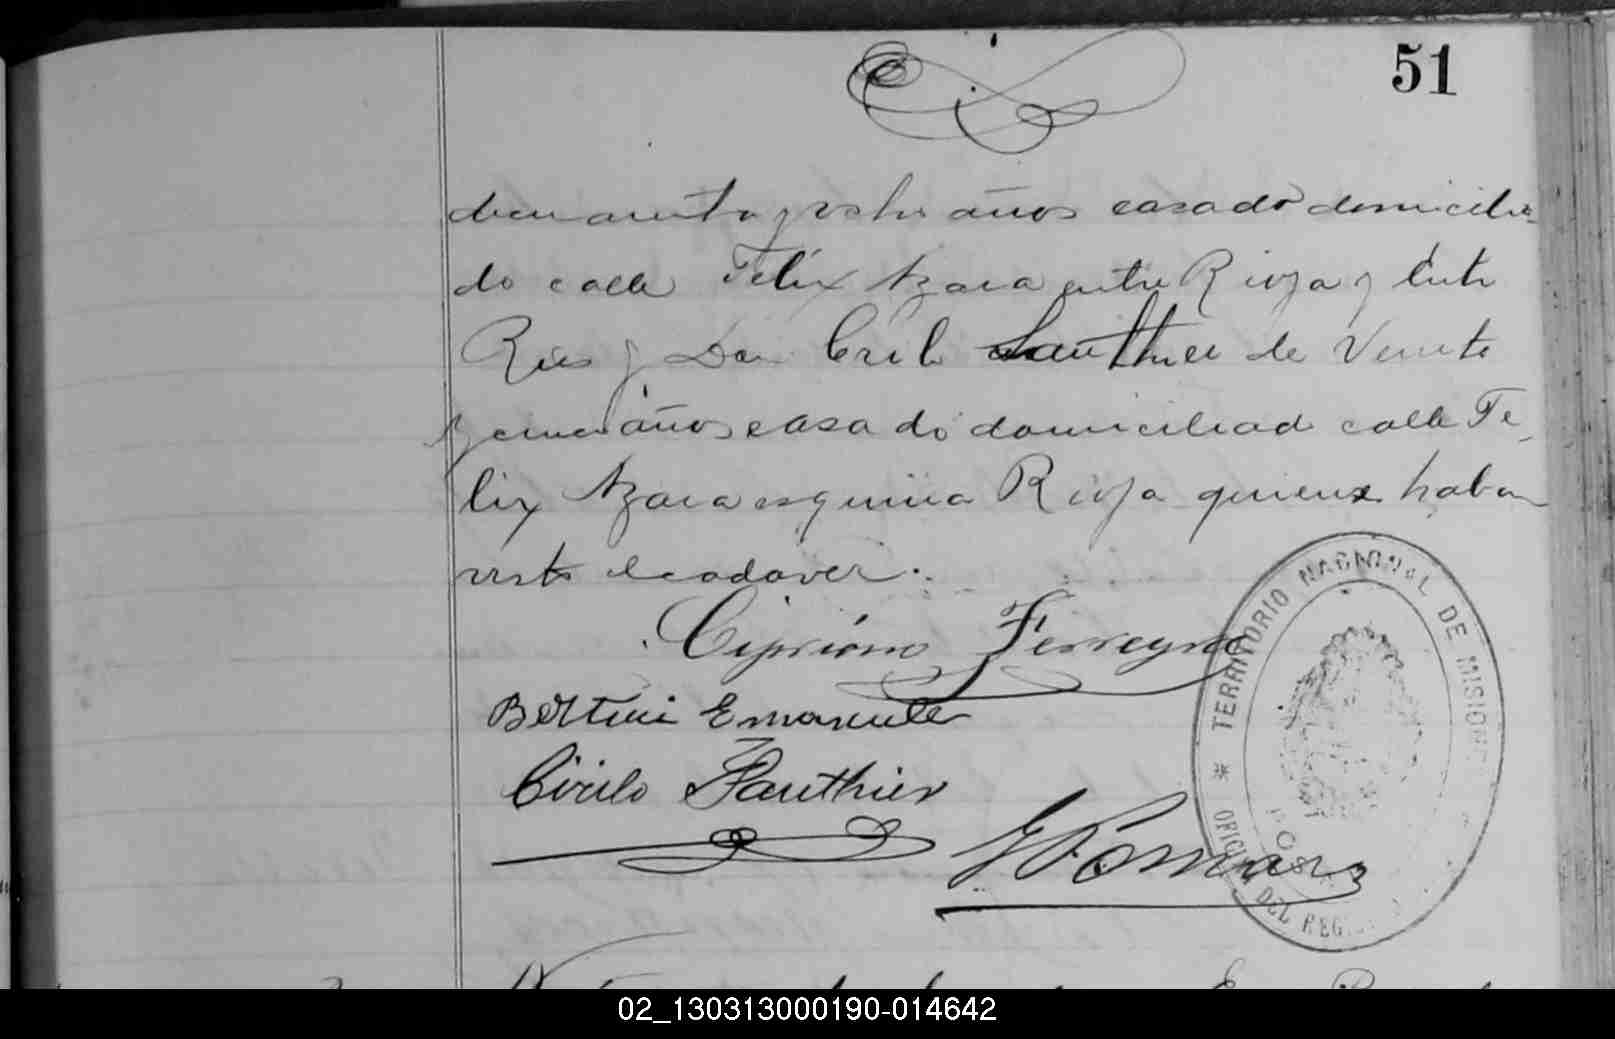 51
de cuarenta y ocho años casado domicilia-
do calle Felix Azara entre Rioja y Entre
Rios y Don Cirilo Fauthier de Veinte
y cinco años casado domiciliado calle Fe-
lix Azara esquina Rioja quienes haban
visto el cadaver.
Cipriano Ferreyra
Bertini Emanuele
Cirilo Fauthier
TERRITORIO NACIONAL DE MISIONES
OFICINA DEL REG
POSA
02_130313000190-014642